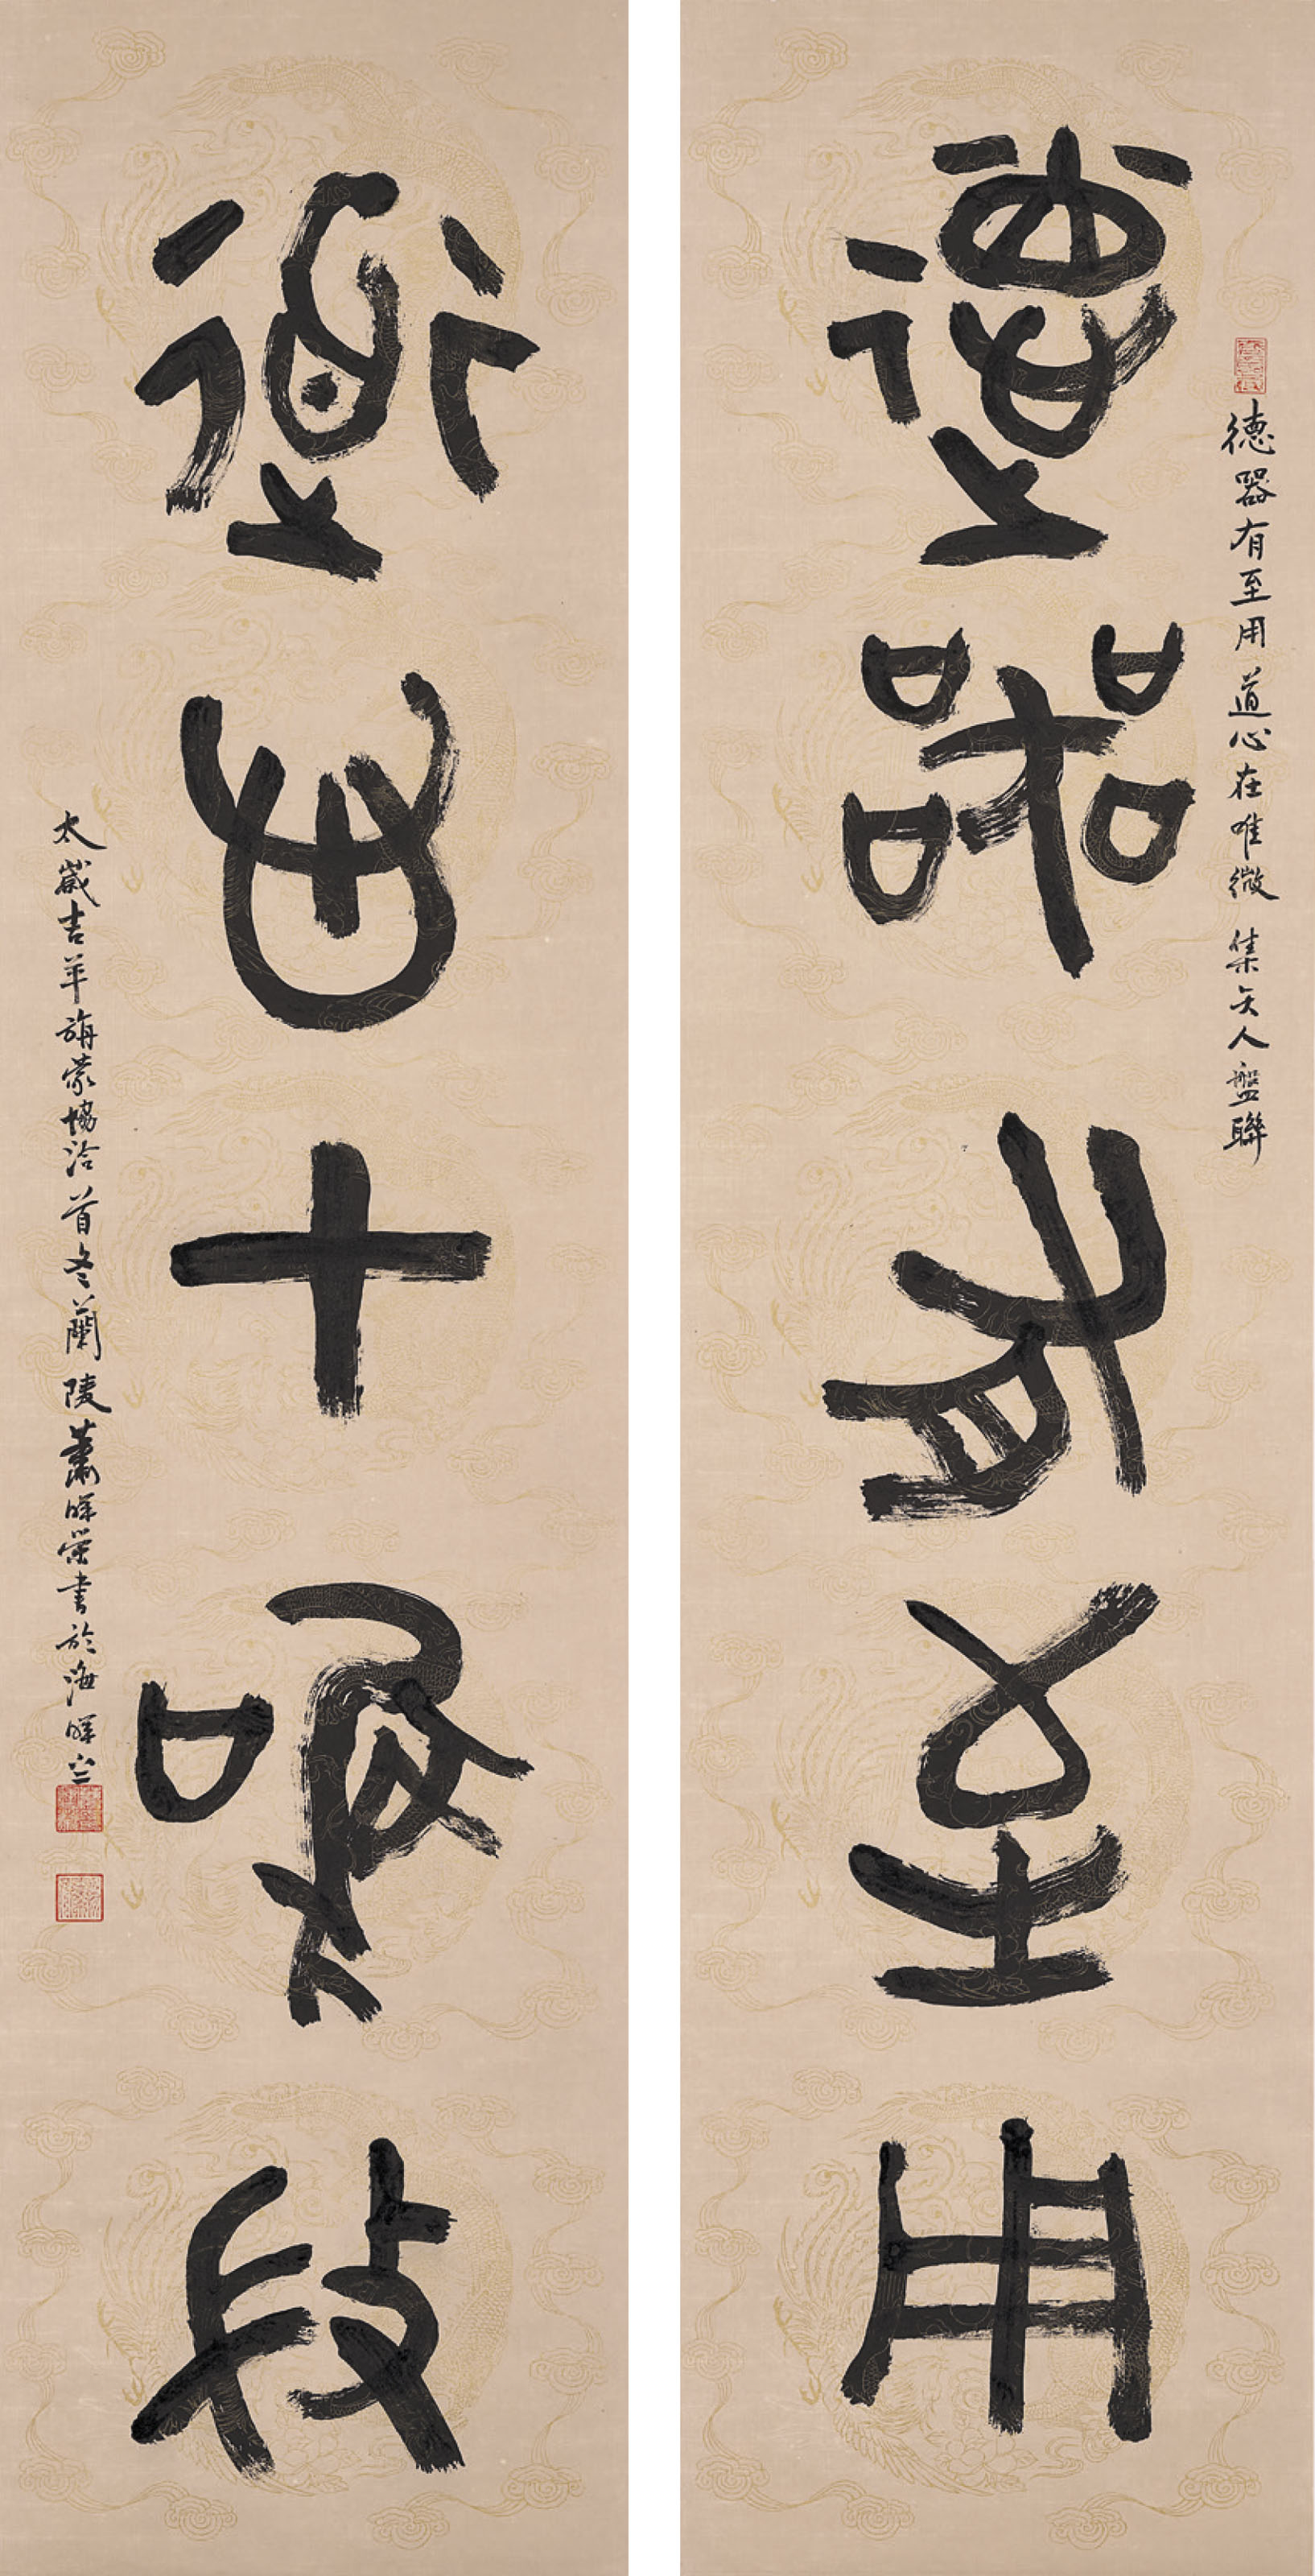 德器有至用
道心在唯微
德器有至用道心在唯微 集矢人盤聯
太歲吉羊旃蒙協洽首冬蘭陵蕭暉榮書於海暉